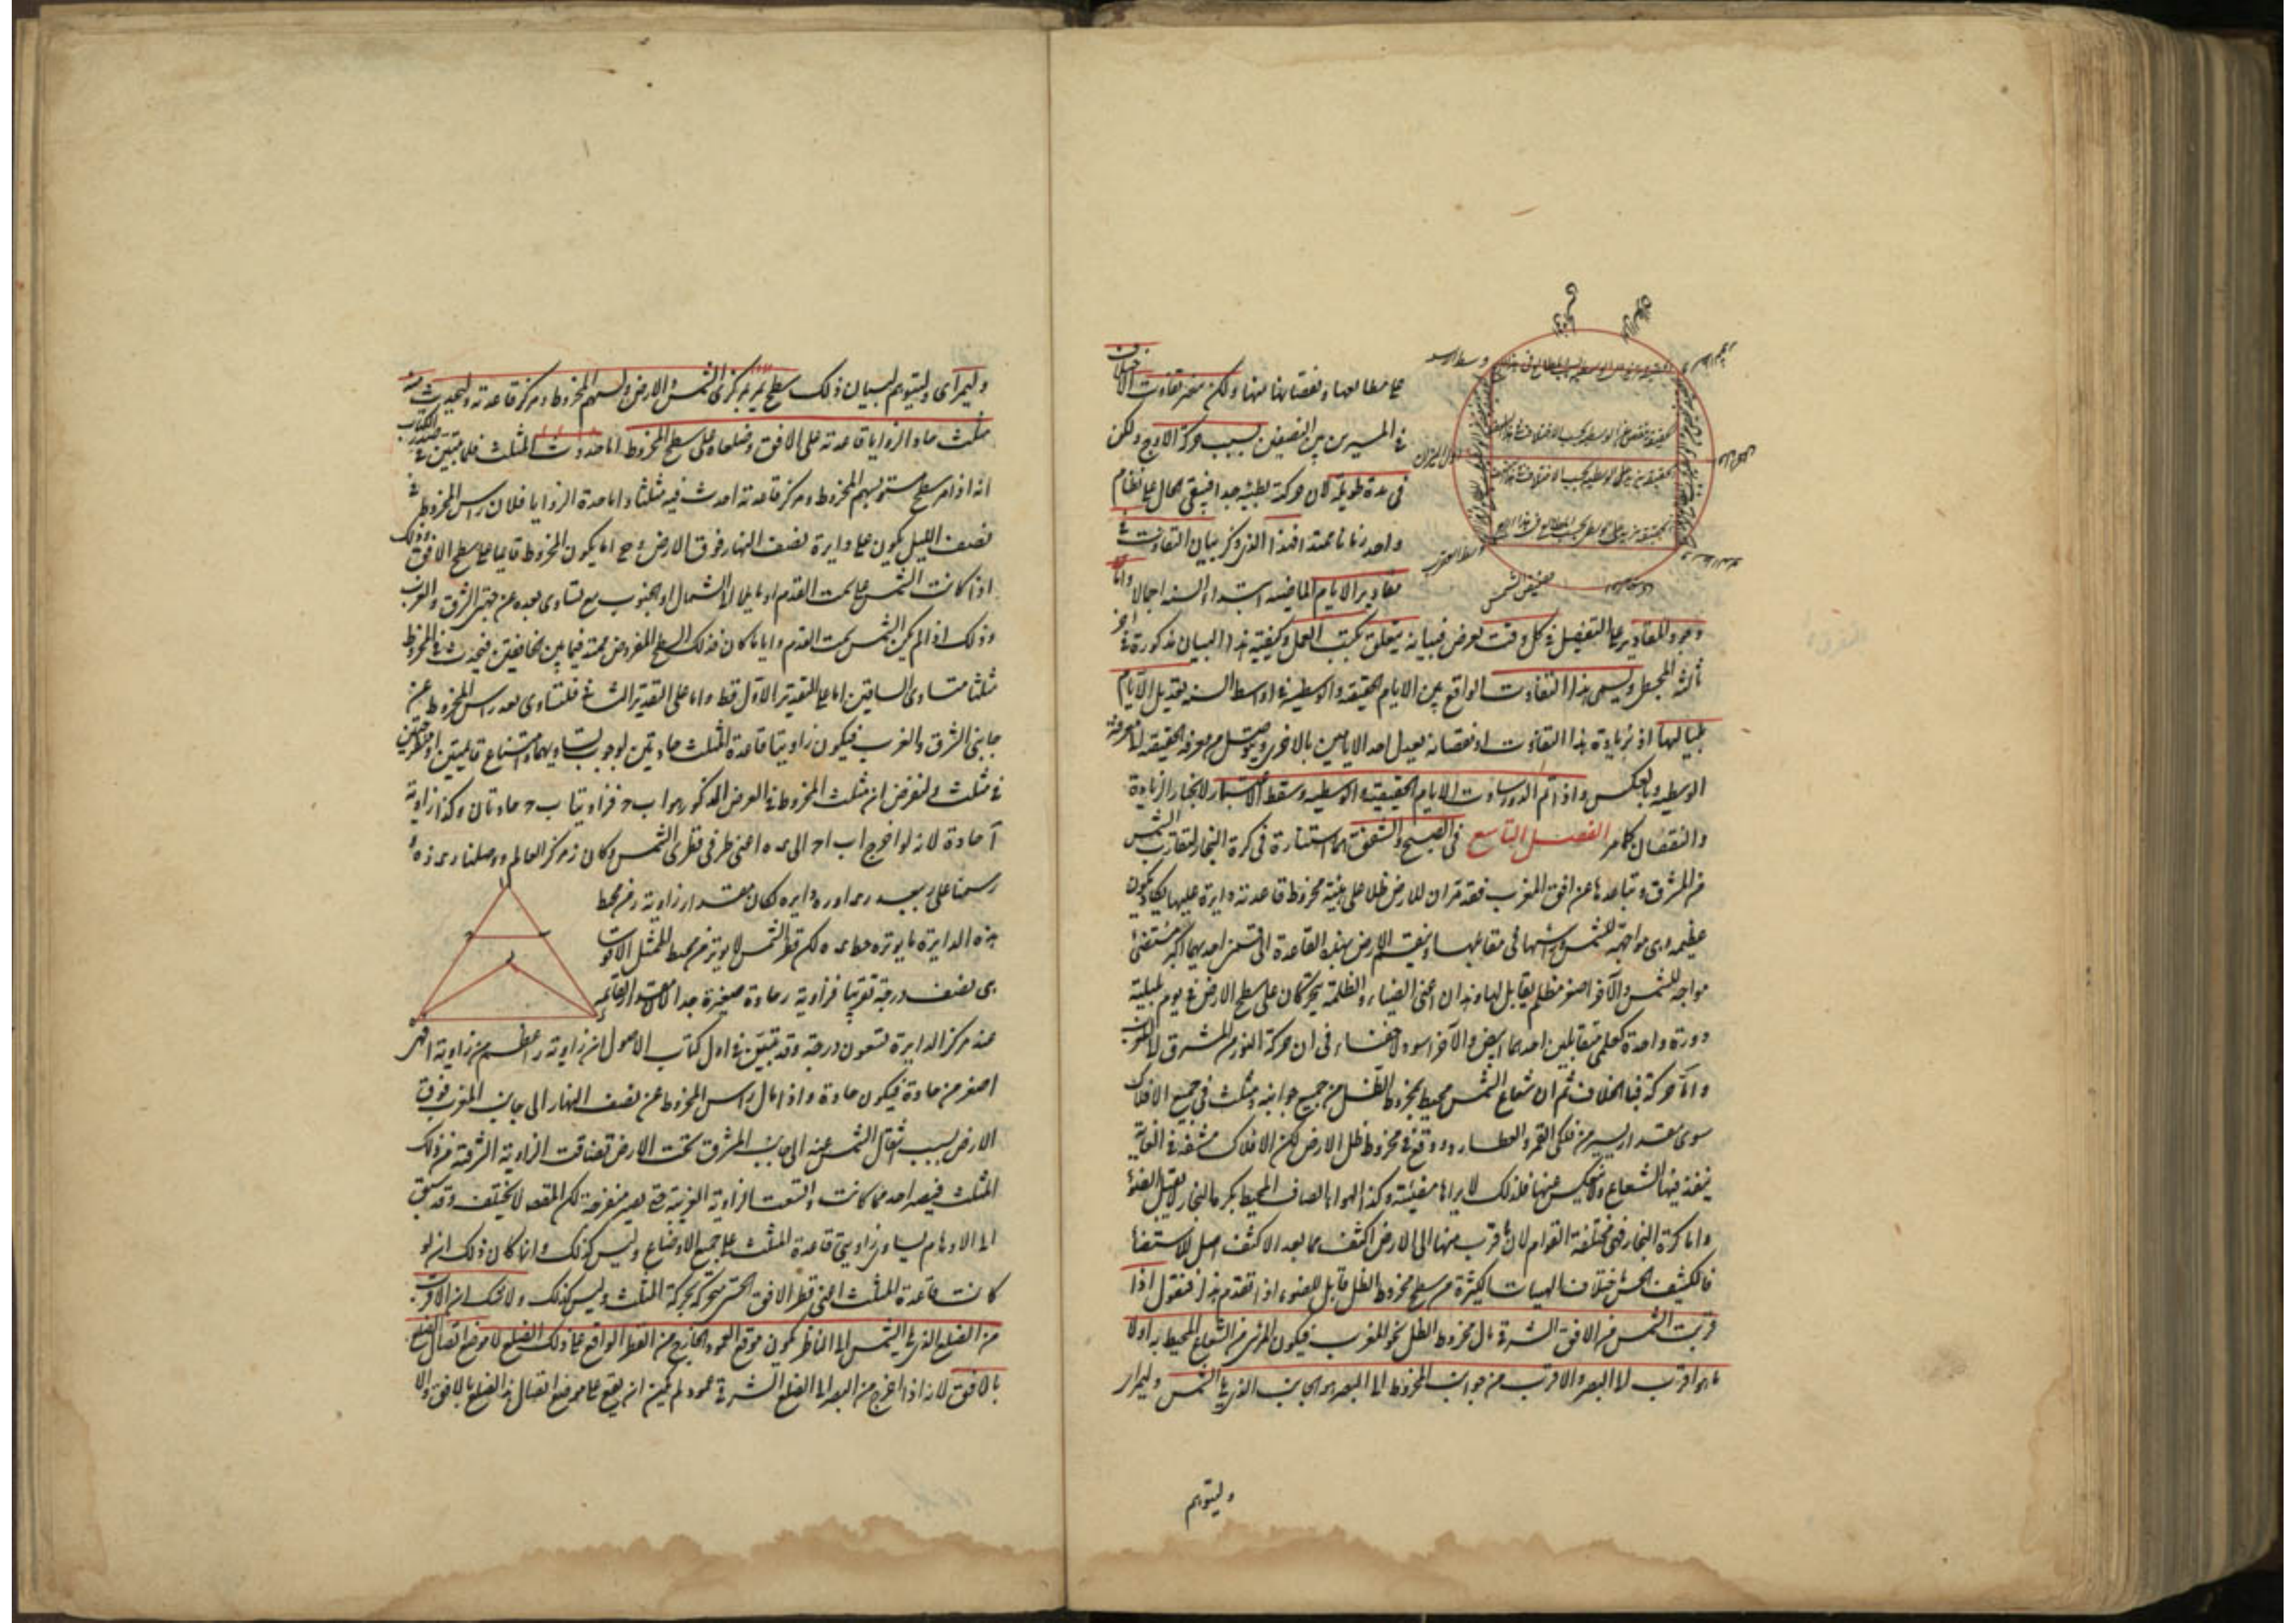 على مطالعها ونقصانها منها ولكن تتغير تفاوت الاختلاف
في المسيرين بين النصفين بسبب حركة الاوج ولكن
في مدة طويلة لان حركته بطيئة جدا فيبقى الحال على نظام
واحد زمانا ممتدا فهذا الذي ذكر بيان التفاوت في
مقادير الايام الماضية ابتداء السنه اجمالا واما
وجود المقادير على التفصيل في كل وقت يعرض فبيانه يتعلق بكتب العمل وكيفية هذا البيان مذكورة في اخر
ثالثة المجسطي ويسمى هذا التفاوت الواقع بين الايام الحقيقية والوسطية في اوسط السنه تعديل الايام
بلياليها اذ بزيادة هذا التفاوت او نقصانه يعدل احد الايامين بالاخر ويتوصل من معرفة الحقيقية الى معرفة
الوسطية وبالعكس واذا تم الدور ساوت الايام الحقيقية الوسطية وسقط الاعتبار لانجبار الزيادة
والنقصان كما مر الفصل التاسع في الصبح والشفق هما استنارة في كرة البخار لتقارب الشمس
من المشرق وتباعدها عن افق المغرب فقد مر ان للارض ظلا على هيئة مخروط قاعدته دايرة عليها يكاد يكون
عظيمة وهي مواجهة للشمس وراسها في مقابلها وينقسم الارض بهذه القاعدة الى قسمين احديهما اكبر مستضئ
مواجه للشمس والآخر اصغر مظلم يقابل لها وهذان اعنى الضياء والظلمة يتحركان على سطح الارض في يوم بليلته
دورة واحدة كعلمين متقابلين احدهما ابيض والآخر اسود ولا خفاء في ان حركة النور من المشرق الى المغرب
واما حركة فبالخلاف ثم ان شعاع الشمس محيط بمخروط الظل من جميع جوانبه ومنبث في جميع الافلاك
سوى مقدار يسير من فلكى القمر والعطارد وقع في مخروط ظل الارض لكن الافلاك مشفة في الغاية
ينفذ فيها الشعاع ولا ينعكس عنها فلذلك لا يراها مضيئة وكذا الهواء الصافى المحيط بكرة البخار لا يقبل الضوء
واما كرة البخار فهي مختلفة القوام لان ما قرب منها الى الارض اكثف مما بعد والاكثف اقبل للاستضاءة
فالكثيف الخشن باختلاف الهيات الكثيرة من سطح مخروط الظل قابل للضوء اذا تقدم هذا فنقول اذا
قربت الشمس من الافق الشرقي مال مخروط الظل نحو المغرب فيكون المرئى من الشعاع المحيط به اولا
ما هو اقرب الى البصر والاقرب من جوانب المخروط الى البصر هو الجانب الذي يلى الشمس
وليتوهم
وليتوهم لبيان ذلك سطح يمر بمركزى الشمس والارض وسهم المخروط ومركز قاعدته وليحدث منه
مثلث حاد الزوايا قاعدته على الافق وضلعاه على سطح المخروط اما حدوث المثلث فلما تبين في صدر الكتاب
انه اذا مر سطح مستو بسهم المخروط ومركز قاعدته احدث فيه مثلثا واما حدة الزوايا فلان راس المخروط في
نصف الليل يكون على دايرة نصف النهار فوق الارض وح اما يكون المخروط قائما على سطح الافق وذلك
اذا كانت الشمس على سمت القدم او مايلا الى الشمال او الجنوب مع تساوى بعده عن جهتي الشرق والغرب
وذلك اذا لم يكن الشمس سمت القدم واياما كان فذلك السطح المفروض ممتد فيما بين الخافقين فيحدث في المخروط
مثلثا متساوى الساقين اما على التقدير الاول فظ واما على التقدير الثاني فلتساوى بعد راس المخروط عن
جانبى الشرق والغرب فيكون زاويتا قاعدة المثلث حادتين لوجوب تساويهما وامتناع قائمتين او منفرجتين
في مثلث ولنفرض ان مثلث المخروط في العرض المذكور هو ا ب ح فزاويتا ب ح حادتان وكذا زاوية
آ حادة لانه لو اخرج اب اح الى ى ه اعنى طرفى قطرى الشمس وكان ز مركز العالم ووصلنا رى ره
رسمنا على ر ببعد رى او ره دايره لكان مقدار زاوية ر من محيط
هذه الدايرة ما يوتره خط ى ه لكن قطر الشمس لا يوتر من محيط الممثل الا قوسا
هى نصف درجة تقريبا فزاوية ر حادة صغيرة جدا اذ مقدار القائمة
عند مركز الدايرة تسعون درجة وقد تبين في اول كتاب الاصول ان زاوية ر اعظم من زاوية ا فهى
اصغر من حادة فيكون حادة واذا مال راس المخروط عن نصف النهار الى جانب المغرب فوق
الارض بسبب انتقال الشمس عنه الى جانب المشرق تحت الارض تضايقت الزاوية الشرقية من ذلك
المثلث فيصير احد مما كانت واتسعت الزاوية الغربية حتى يصير منفرجة لكن المقصود لا يختلف وقد سبق
الى الاوهام تساوى زاويتى قاعدة المثلث على جميع الاوضاع وليس كذلك وانما كان ذلك ان لو
كانت قاعدة المثلث اعنى قطر الافق الحسى متحركة بحركة المثلث وليس كذلك ولا شك ان الاقرب
من الضلع الذي يلى الشمس الى الناظر يكون موقع العمود الخارج من النظر الواقع على ذلك الضلع لا موضع اتصال الضلع
بالافق لانه اذا اخرج من البصر الى الضلع الشرقي عمود لم يمكن ان يقع على موضع اتصال هذا الضلع بالافق والا